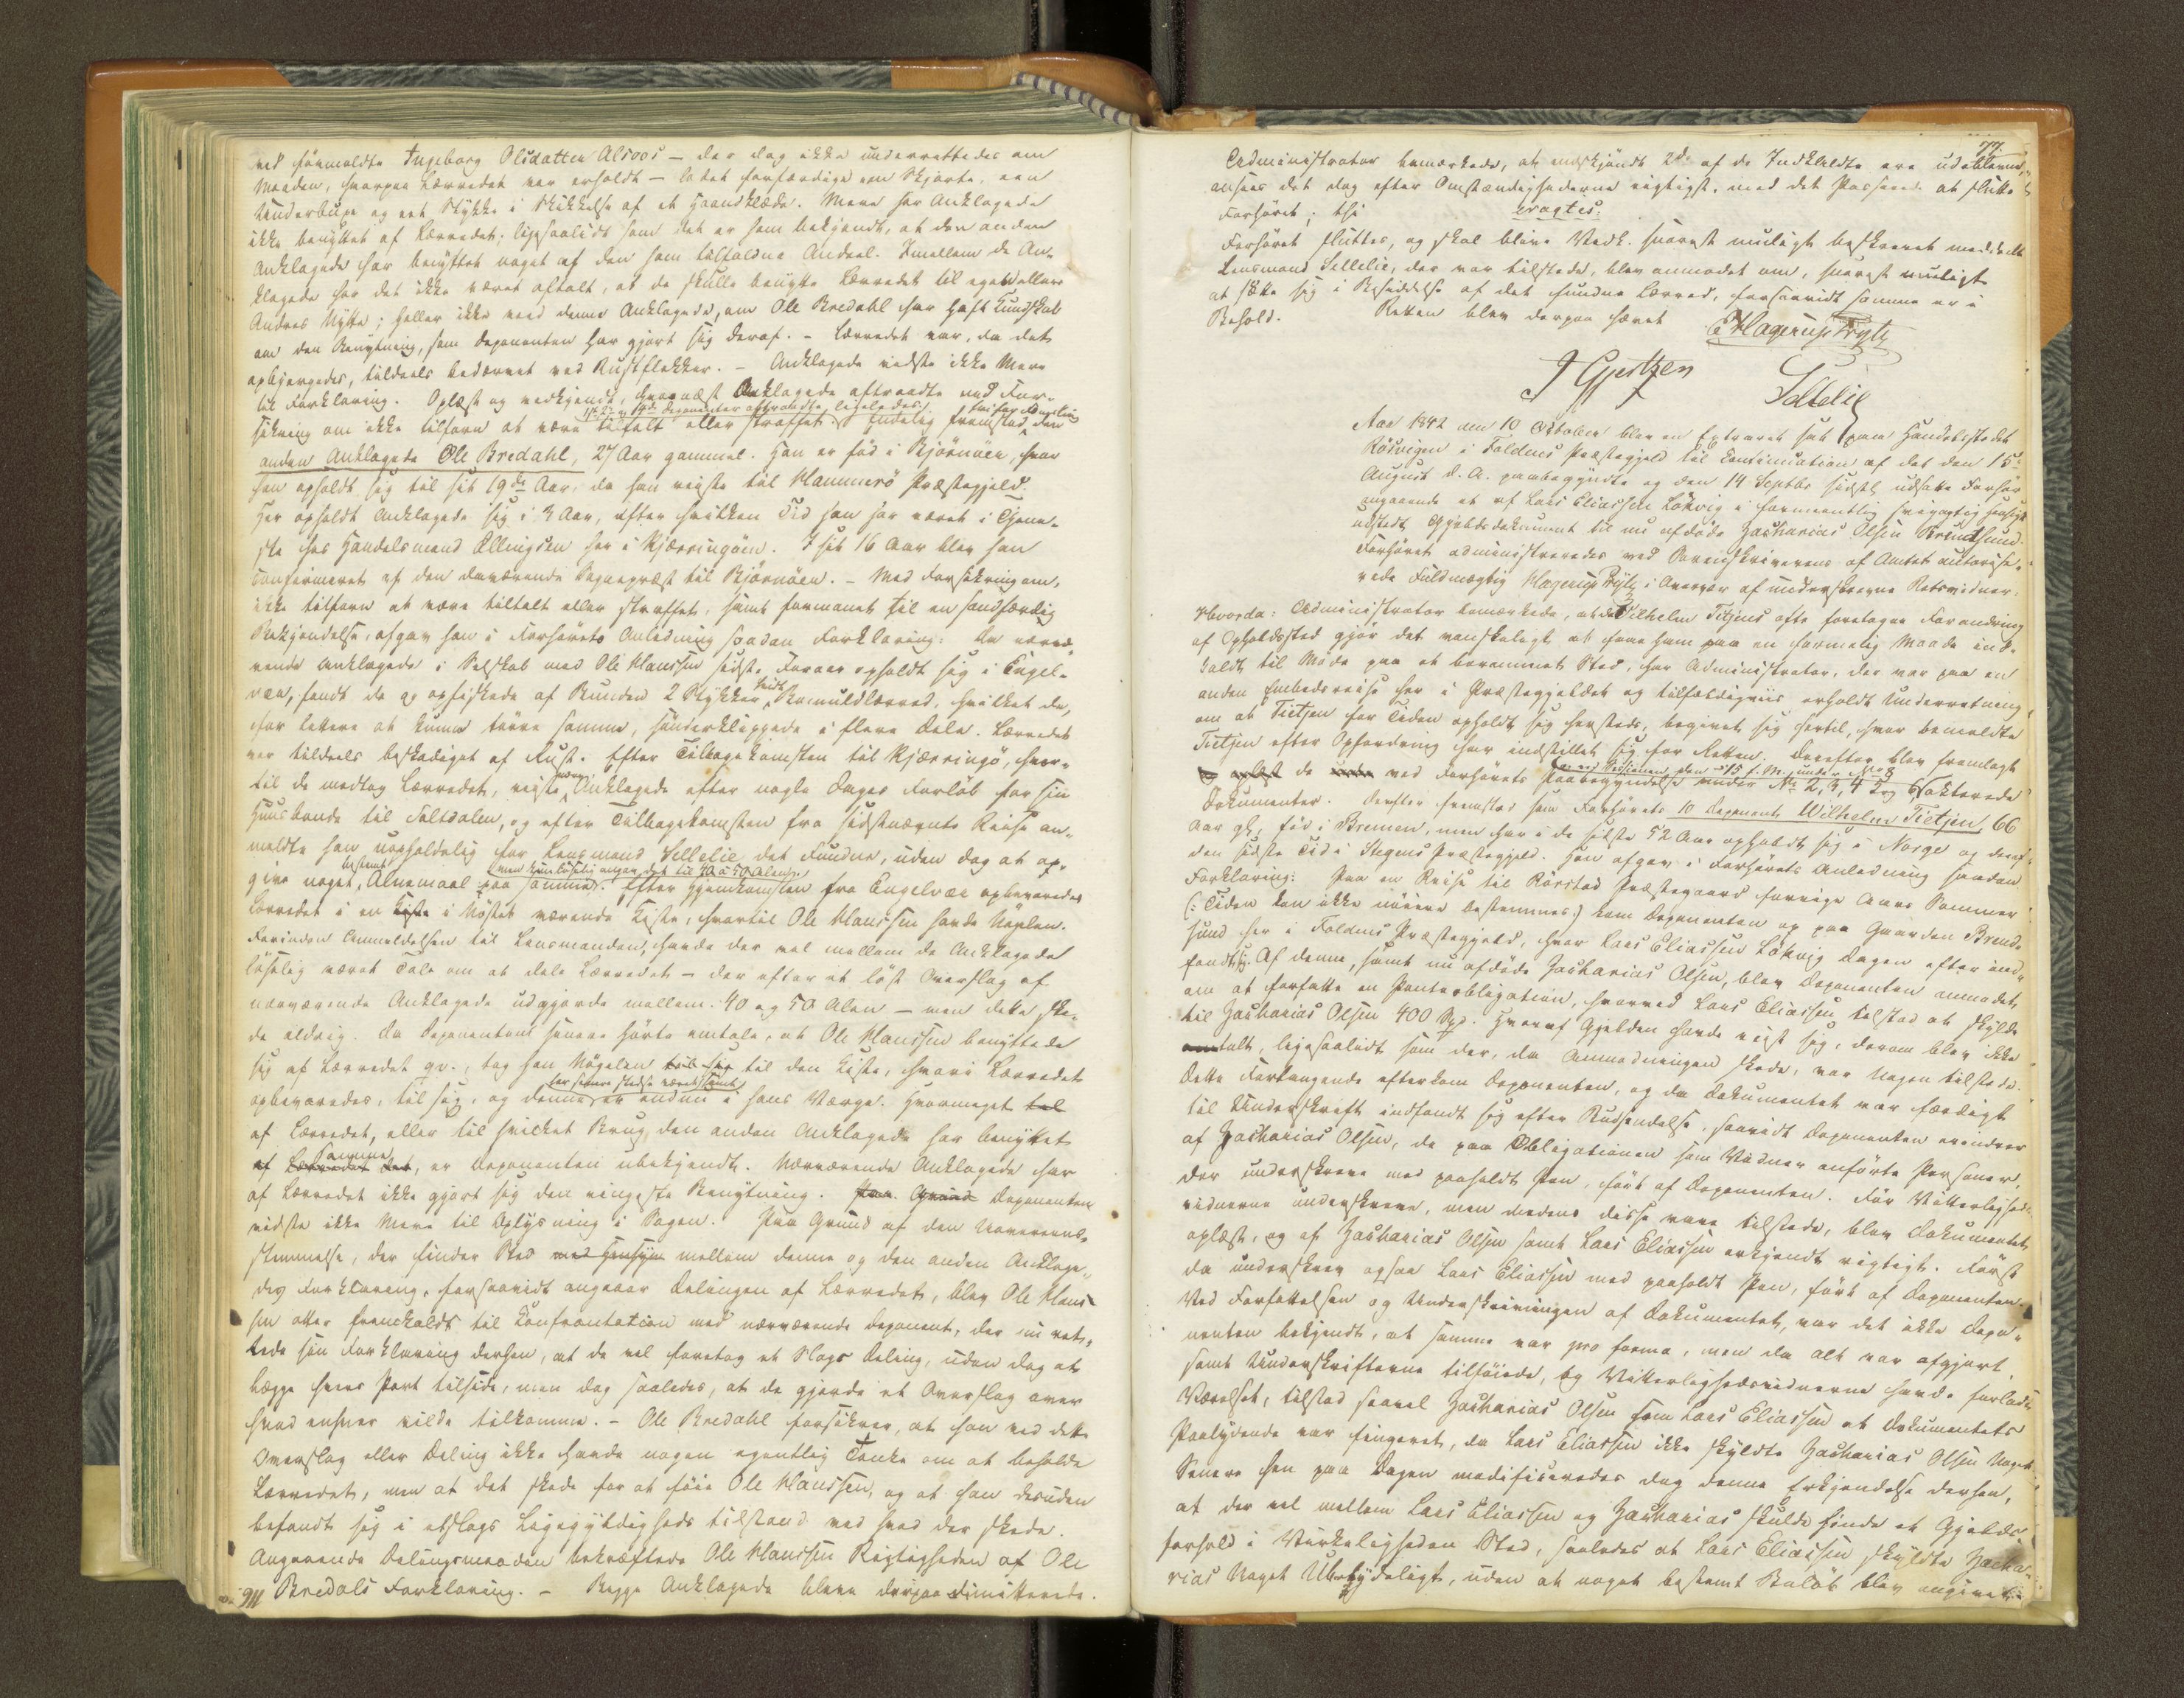 ved formeldte Ingeborg Olsdatter Alsoos – der dog ikke underrettedes om
Maaden, hvorpaa Lærredet var erholdt – ladet forfærdige een Skjorte, een
Underbuxe og eet Stykke i Skikkelse af et Haandklæde. Mere har Anklagede
ikke benyttet af Lærredet; ligesaalidt som det er ham bekjendt, at den anden
Anklagede har benyttet noget af den ham tilfaldne Andeel. Imellem de An-
klagede har det ikke været aftalt, at de skulle benytte Lærredet til eget eller
Andres Nytte; heller ikke veed denne Anklagede, om Ole Bredahl har havt Kundskab
om den Benyttning, som Deponenten har gjort sig deraf. – Lærredet var, da det
opbjergedes, tildeels bedærvet ved Rustflekker. – Anklagede vidste ikke Mere
til Forklaring. Oplæst og vedkjendt, hvornæst Anklagede aftraadte med For-
sikring om ikke tilforn at være tiltalt eller straffet. Endelig fremstod den
anden Anklagede Ole Bredahl, 27 Aar gammel. Han er fød i Bjørnøen, hvor
han opholdt sig til sit 19de Aar, da han reiste til Hammerö Præstegjeld.
Her opholdt Anklagede sig i 3 Aar, efter hvilken Tid han har været i Tjene-
ste hos Handelsmand Ellingsen her i Kjærringøen. I sit 16 Aar blev han
confirmeret af den daværende Sognepræst til Bjørnöen. – Med Forsikring om,
ikke tilforn at være tiltalt eller straffet, samt formanet til en sandfærdig
Bekjendelse, afgav han i Forhörets Anledning saadan Forklaring: Da nærvæ-
rende Anklagede i Selskab med Ole Hanssen sidste Foraar opholdt sig i Engel-
vær, fandt de og opfiskede af Bunden 2 Stykker hvidt Bomuldlærred, hvilket de,
for lettere at kunne tørre samme, sønderklippede i flere Dele. Lærredet
var tildeels beskadiget af Rust. Efter Tilbagekomsten til Kjærringö, hvor-
til de medtog Lærredet, reiste nærv. Anklagede efter nogle Dages Forløb for sin
Huusbonde til Saltdalen, og efter Tilbagekomsten fra sidstnævnte Reise an-
meldte han uopholdelig for Lensmand Sellelie det Fundne, uden dog at op-
give noget bestemt Alnemaal paa samme. men kun løselig angav det til 40 à 50 Alen. Efter Hjemkomsten fra Engelvær opbevaredes
Lærredet i en i Nöstet værende Kiste, hvortil Ole Hanssen havde Nøglen.
Forinden Anmeldelsen til Lensmanden, havde der vel mellem de Anklagede
löselig været Tale om at dele Lærredet – der efter et löst Overslag af
nærværende Anklagede udgjorde mellem 40 og 50 Alen – men dette ske-
de aldrig. Da Deponenten senere hørte omtale, at Ole Hanssen benyttede
sig af Lærredet, tog han Nögelen til den Kiste, hvori Lærredet
opbevaredes, til sig, og denne er endnu i hans Værge. Hvormeget
af Lærredet, eller til hvilket Brug den anden Anklagede har benyttet
samme, er Deponenten ubekjendt. Nærværende Anklagede har
af Lærredet ikke gjort sig den ringeste Benyttning. Deponenten
vidste ikke Mere til Oplysning i Sagen. Paa Grund af den Uoverens-
stemmelse, der finder Sted mellem denne og den anden Anklage-
des Forklaring, forsaavidt angaaer Delingen af Lærredet, blev Ole Hans-
sen atter fremkaldt til Confrontation med nærværende Deponent, der nu ret-
tede sin Forklaring derhen, at de vel foretog et Slags Deling, uden dog at
lægge hvers Part tilside, men dog saaledes, at de gjorde et Overslag over
hvad enhver vilde tilkomme. – Ole Bredahl forsikrer, at han ved dette
Overslag eller Deling ikke havde nogen egentlig Tanke om at beholde
Lærredet, men at det skede for at föie Ole Hanssen, og at han desuden
befandt sig i etslags Ligegyldigheds tilstand ved hvad der skede.
Angaaende Delingsmaaden bekræftede Ole Hanssen Rigtigheden af Ole
Bredals Forklaring. – Begge Anklagede bleve derpaa dimitterede.
77
Administrator bemærkede, at endskjøndt 2de af de Indkaldte ere udeblevne,
ansees det dog efter Omstændighederne rigtigst, med det Passerede at slutte
Forhöret; thi
eragtes:
Forhöret sluttes, og skal blive Vedk. snarest muligt beskrevet meddeelt
Lensmand Sellelie, der var tilstede, blev anmodet om, snarest mueligt
at sætte sig i Besiddelse af det fundne Lærred, forsaavidt samme er i
Behold. Retten blev derpaa hævet
Hagerup Prytz
J Gjertzen Sellelie
Aar 1842 den 10 October blev en Extraret sat paa Handelsstedet
Rösvigen i Foldens Præstegjeld til Continuation af det den 15de
August d. A. paabegyndte og den 14 Septbr sidstl. udsatte Forhör
angaaende et af Lars Eliassen Lökvig i formeentlig svigagtig Hensigt
udstedt Gjeldsdokument til nu afdöde Zacharias Olsen Brendsund.
Forhöret administreredes ved Sorenskriverens af Amtet autorise-
rede Fuldmægtig Hagerup Prytz i Overvær af underskrevne Retsvidner.
Hvorda: Administrator bemærkede, at da Wilhelm Titjens ofte foretagne Forandring
af Opholdssted gjör det vanskeligt at faae ham paa en formelig Maade ind-
kaldt til Møde paa et berammet Sted, har Administrator, der var paa en
anden Embedsreise her i Præstegjeldet og tilfældigviis erholdt Underretning
om at Tietjen for Tiden opholdt sig hersteds, begivet sig hertil, hvor bemeldte
Tietjen efter Opfordring har indstillet sig for Retten. Derefter blev fremlagt
de ved Forhörets Paabegyndelse under No 2, 3, 4 og 6 akterede
Dokumenter. Derefter fremstod som Forhörets 10 Deponent Wilhelm Tietjen, 66
Aar gl., föd i Bremen, men har i de sidste 52 Aar opholdt sig i Norge og deraf
den sidste Tid i Stegens Præstegjeld. Han afgav i Forhörets Anledning saadan
Forklaring: Paa en Reise til Rörstad Præstegaard forrige Aars Sommer
(: Tiden kan ikke nöiere bestemmes :) kom Deponenten op paa Gaarden Brend-
sund her i Foldens Præstegjeld, hvor Lars Eliassen Lökvig Dagen efter ind-
fandt sig. Af denne, samt nu afdöde Zacharias Olsen, blev Deponenten anmodet
om at forfatte en Panteobligation, hvorved Lars Eliassen tilstod at skylde
til Zacharias Olsen 400 Spd. Hvoraf Gjelden havde reist sig, derom blev ikke
talt, ligesaalidt som der, da Anmodningen skede, var Nogen tilstede.
Dette Forlangende efterkom Deponenten, og da Dokumentet var færdigt
til Underskrift indfandt sig efter Budsendelse, saavidt Deponenten erindrer
af Zacharias Olsen, de paa Obligationen som Vidner anförte Personer,
der underskreve med paaholdt Pen, fört af Deponenten. Før Vitterligheds-
vidnerne underskreve, men medens disse vare tilstede, blev Dokumentet
oplæst, og af Zacharias Olsen samt Lars Eliassen erkjendt rigtigt. Först
da underskrev ogsaa Lars Eliassen med paaholdt Pen, fört af Deponenten.
Ved Forfattelsen og Underskrivningen af Dokumentet, var det ikke Depo-
nenten bekjendt, at samme var pro forma, men da alt var afgjort
samt Underskrifterne tilföiede, og Vitterlighedsvidnerne havde forladt
Værelset, tilstod saavel Zacharias Olsen som Lars Eliassen at Dokumentets
Paalydende var fingeret, da Lars Eliassen ikke skyldte Zacharias Olsen Noget
Senere hen paa Dagen modificeredes dog denne Erkjendelse derhen,
at der vel mellem Lars Eliassen og Zacharias skulde finde et Gjelds-
forhold i Virkeligheden Sted, saaledes at Lars Eliassen skyldte Zacha-
rias Noget Ubetydeligt, uden at noget bestemt Belöb blev angivet.